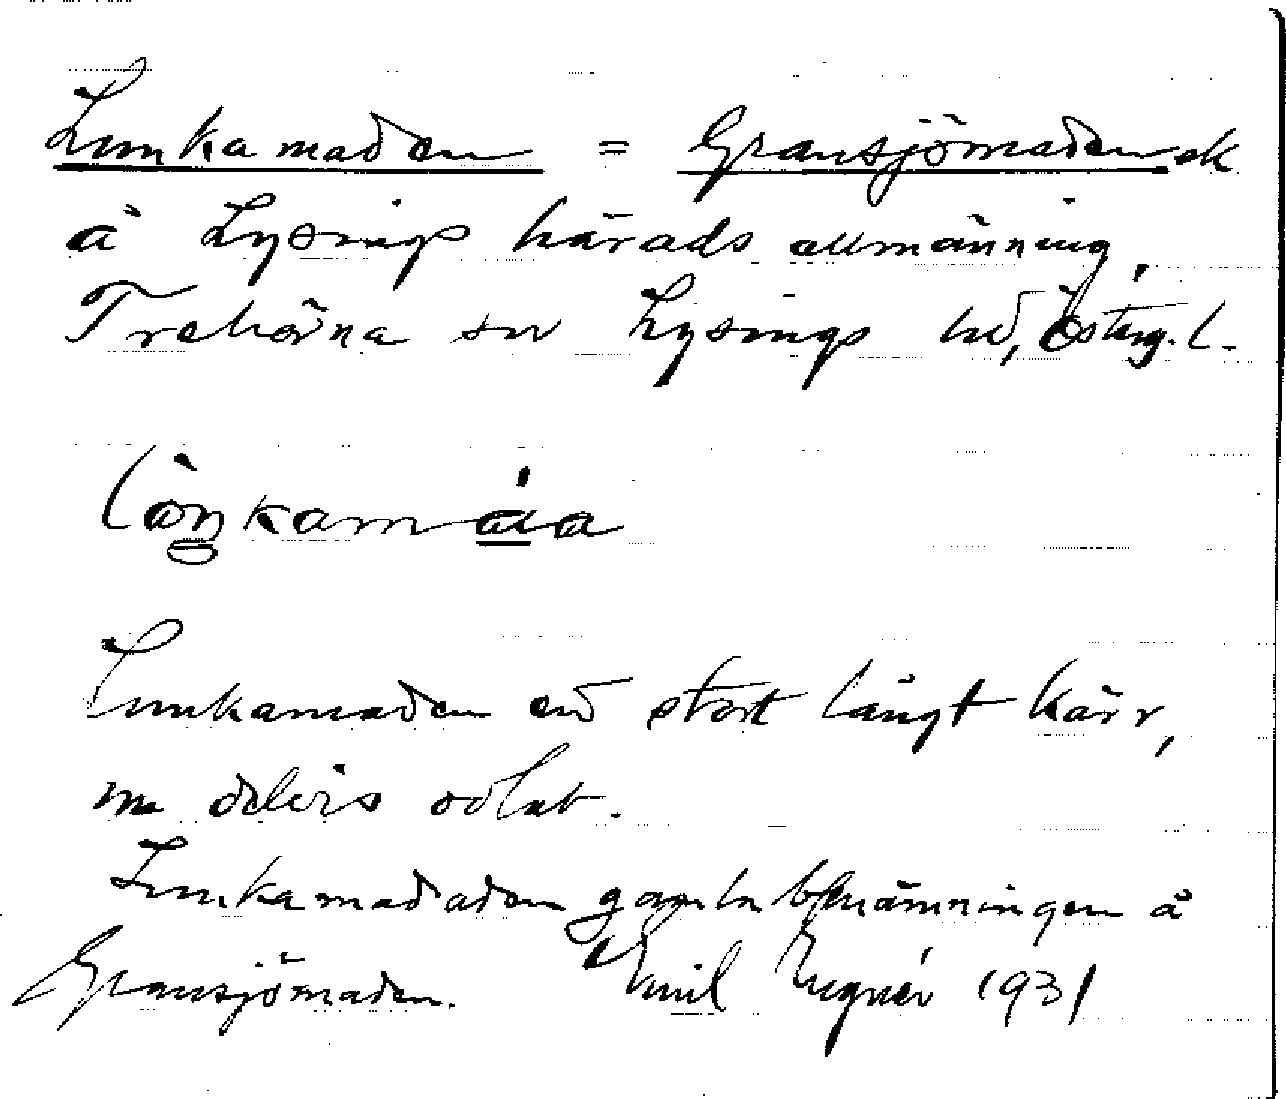 Lunkamaden = Gransjömaden ek
å Lysings härads allmänning,
Trehörna sn Lysings hd, Österg. l.
Lunkamaden ett stort långt kärr,
nu delvis odlat.
Lunkamadaden gamla benämningen å
Gransjömaden. Emil 1931